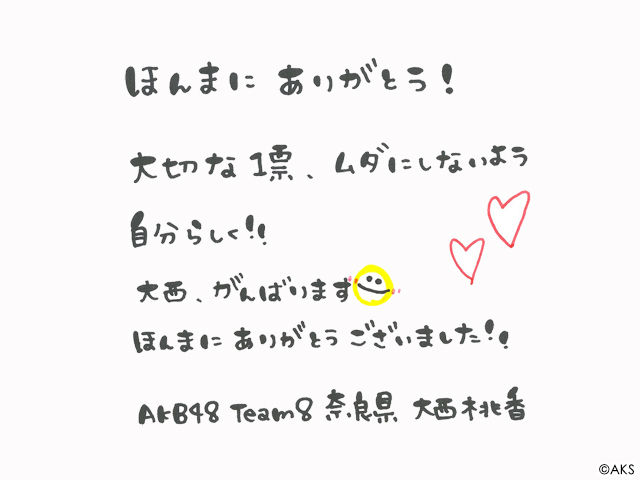 ほんまに ありがとう!
大切な1票、ムダにしないよう
自分らしく!!
大西、がんばります
ほんまに ありがとう ございました!!
AKB48 Team8 奈良県 大西桃香
©AKS